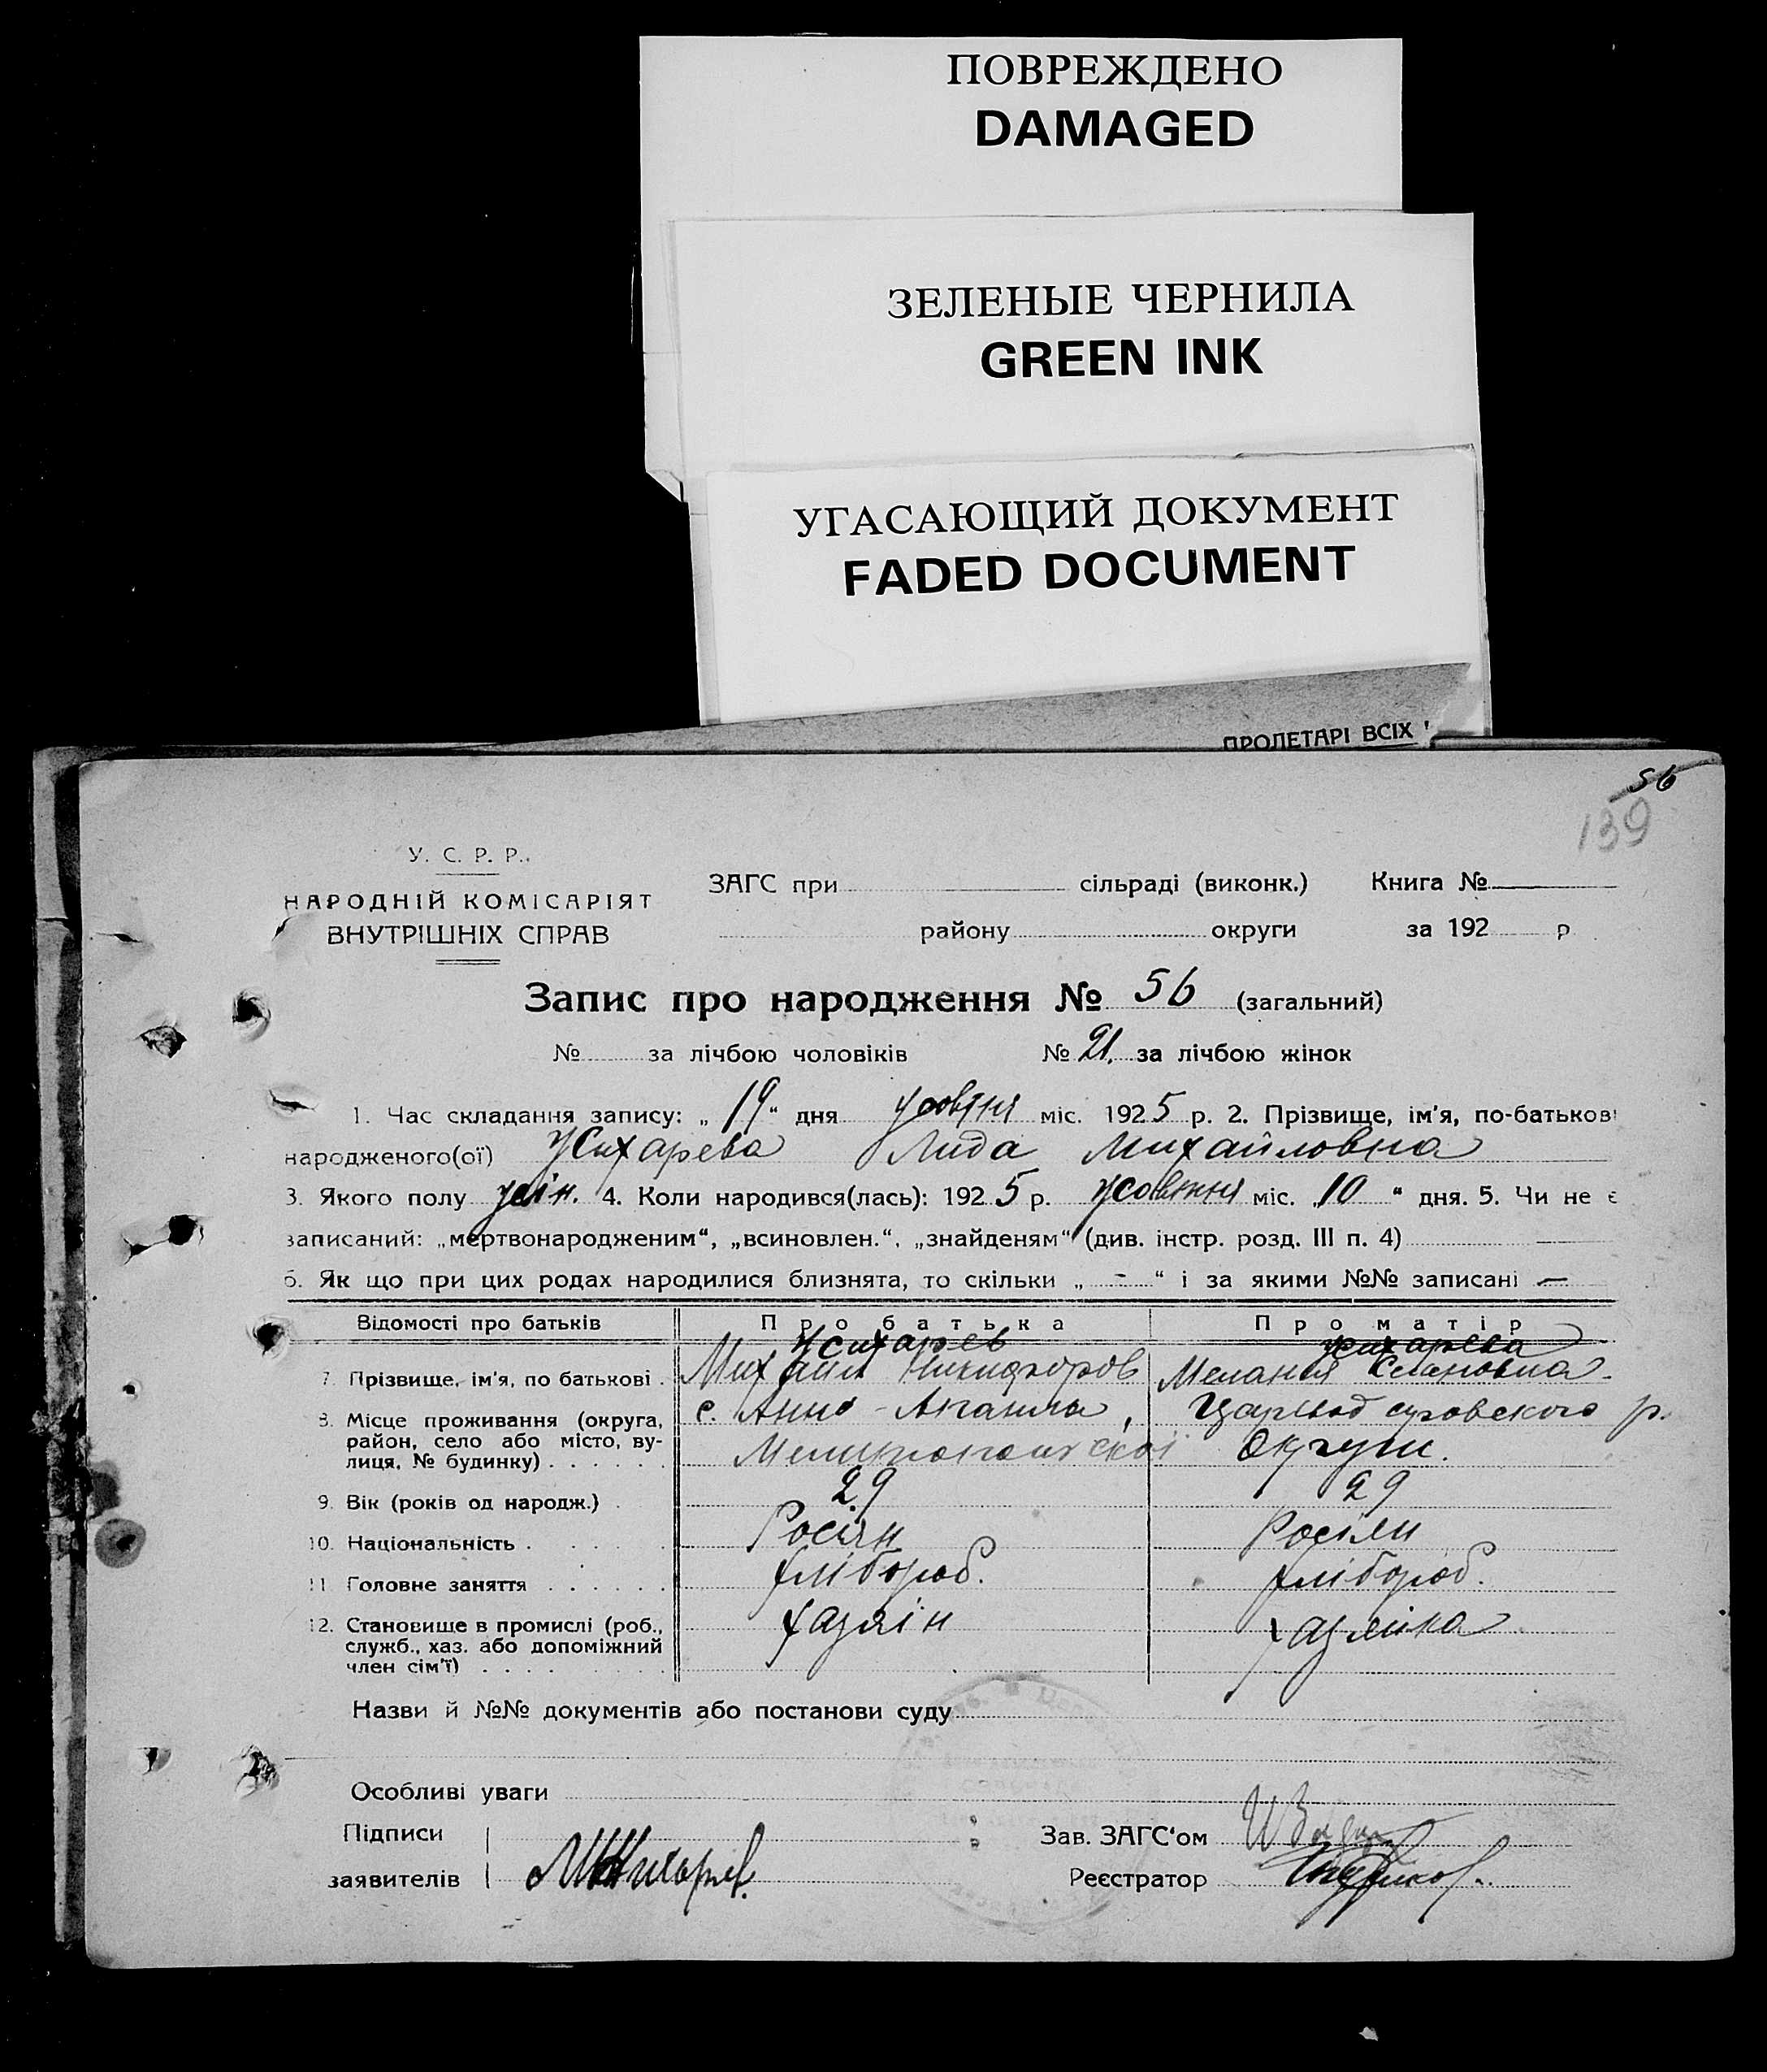 ПОВРЕЖДЕНО
DAMAGED
ЗЕЛЕНЫЕ ЧЕРНИЛА
GREEN INK
УГАСАЮЩИЙ ДОКУМЕНТ
FADED DOCUMENT
ПРОЛЕТАРІ ВСІХ
56
139
У. С. Р. Р.
НАРОДНІЙ КОМІСАРІЯТ
ВНУТРІШНІХ СПРАВ
ЗАГС при сільраді (виконк.) Книга №
району округи за 192 р
Запис про народження № 56 (загальний)
№ за лічбою чоловіків № 21. за лічбою жінок
1. Час складання запису: „ 19 “ дня жовтня міс. 1925 р. 2. Прізвище, ім'я, по-батькові
народженого(ої) Жихарева Лида Михайловна
3. Якого полу жін. 4. Коли народився(лась): 1925 р. жовтня міс. „10“ дня. 5. Чи не є
записаний: „мертвонародженим“, „всиновлен.“, „знайденям“ (див. інстр. розд. III п. 4)
6. Як що при цих родах народилися близнята, то скільки „ - “ і за якими №№ записані —
Відомості про батьків Про батька Про матір
Жихарев Жихарева
7. Прізвище, ім'я, по батькові . Михаил Никифоров Мелания
8. Місце проживання (округа, с. Анно- , р.
район, село або місто, ву-
лиця, № будинку) . . . . . . Мелитопольскої Округи.
9. Вік (років од народж.) . 29 29
10. Національність . . . . . Росіян Росіян
11. Головне заняття . . . . . . хлібороб. хлібороб.
12. Становище в промислі (роб., хазяін хазяйка
служб., хаз. або допоміжний
член сім'ї) . . . .
Назви й №№ документів або постанови суду
Особливі уваги
Підписи Зав. ЗАГС'ом
заявителів Реєстратор